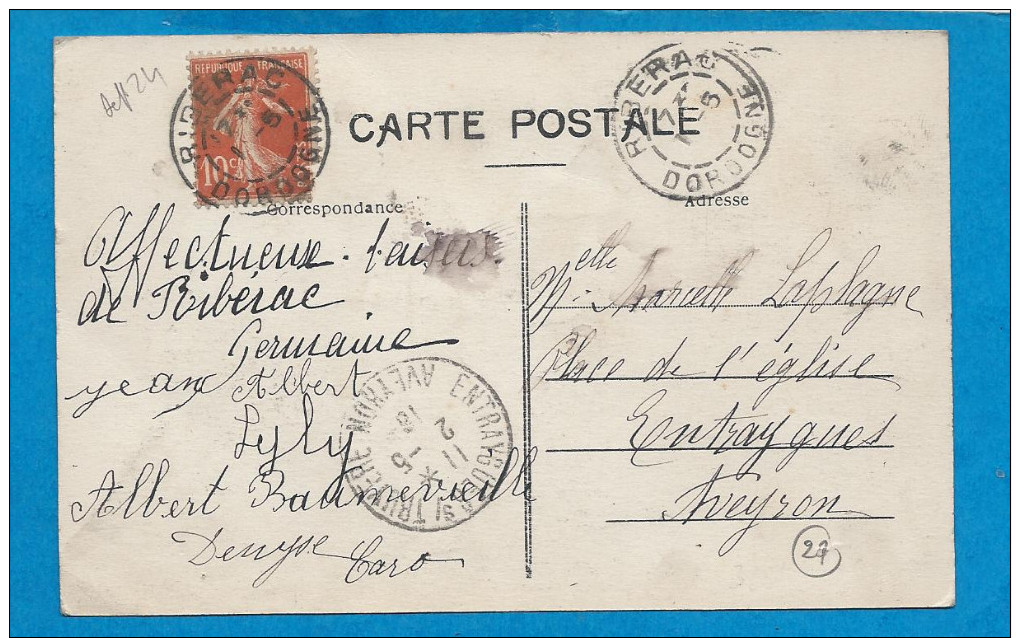 REPUBLIQUE FRANCAISE
10c
RIBERAC
DORDOGNE
CARTE POSTALE
RIBERAC
DORDOGNE
Correspondance
Affectueux baisers
de Ribérac
Germaine
Jean Albert
Lyly
Albert
Denyse Caro
ENTRAYGUES S/ TRUYERE AVEYRON
Adresse
Melle Marcelle Laplagne
Place de l'église
Entraygues
Aveyron